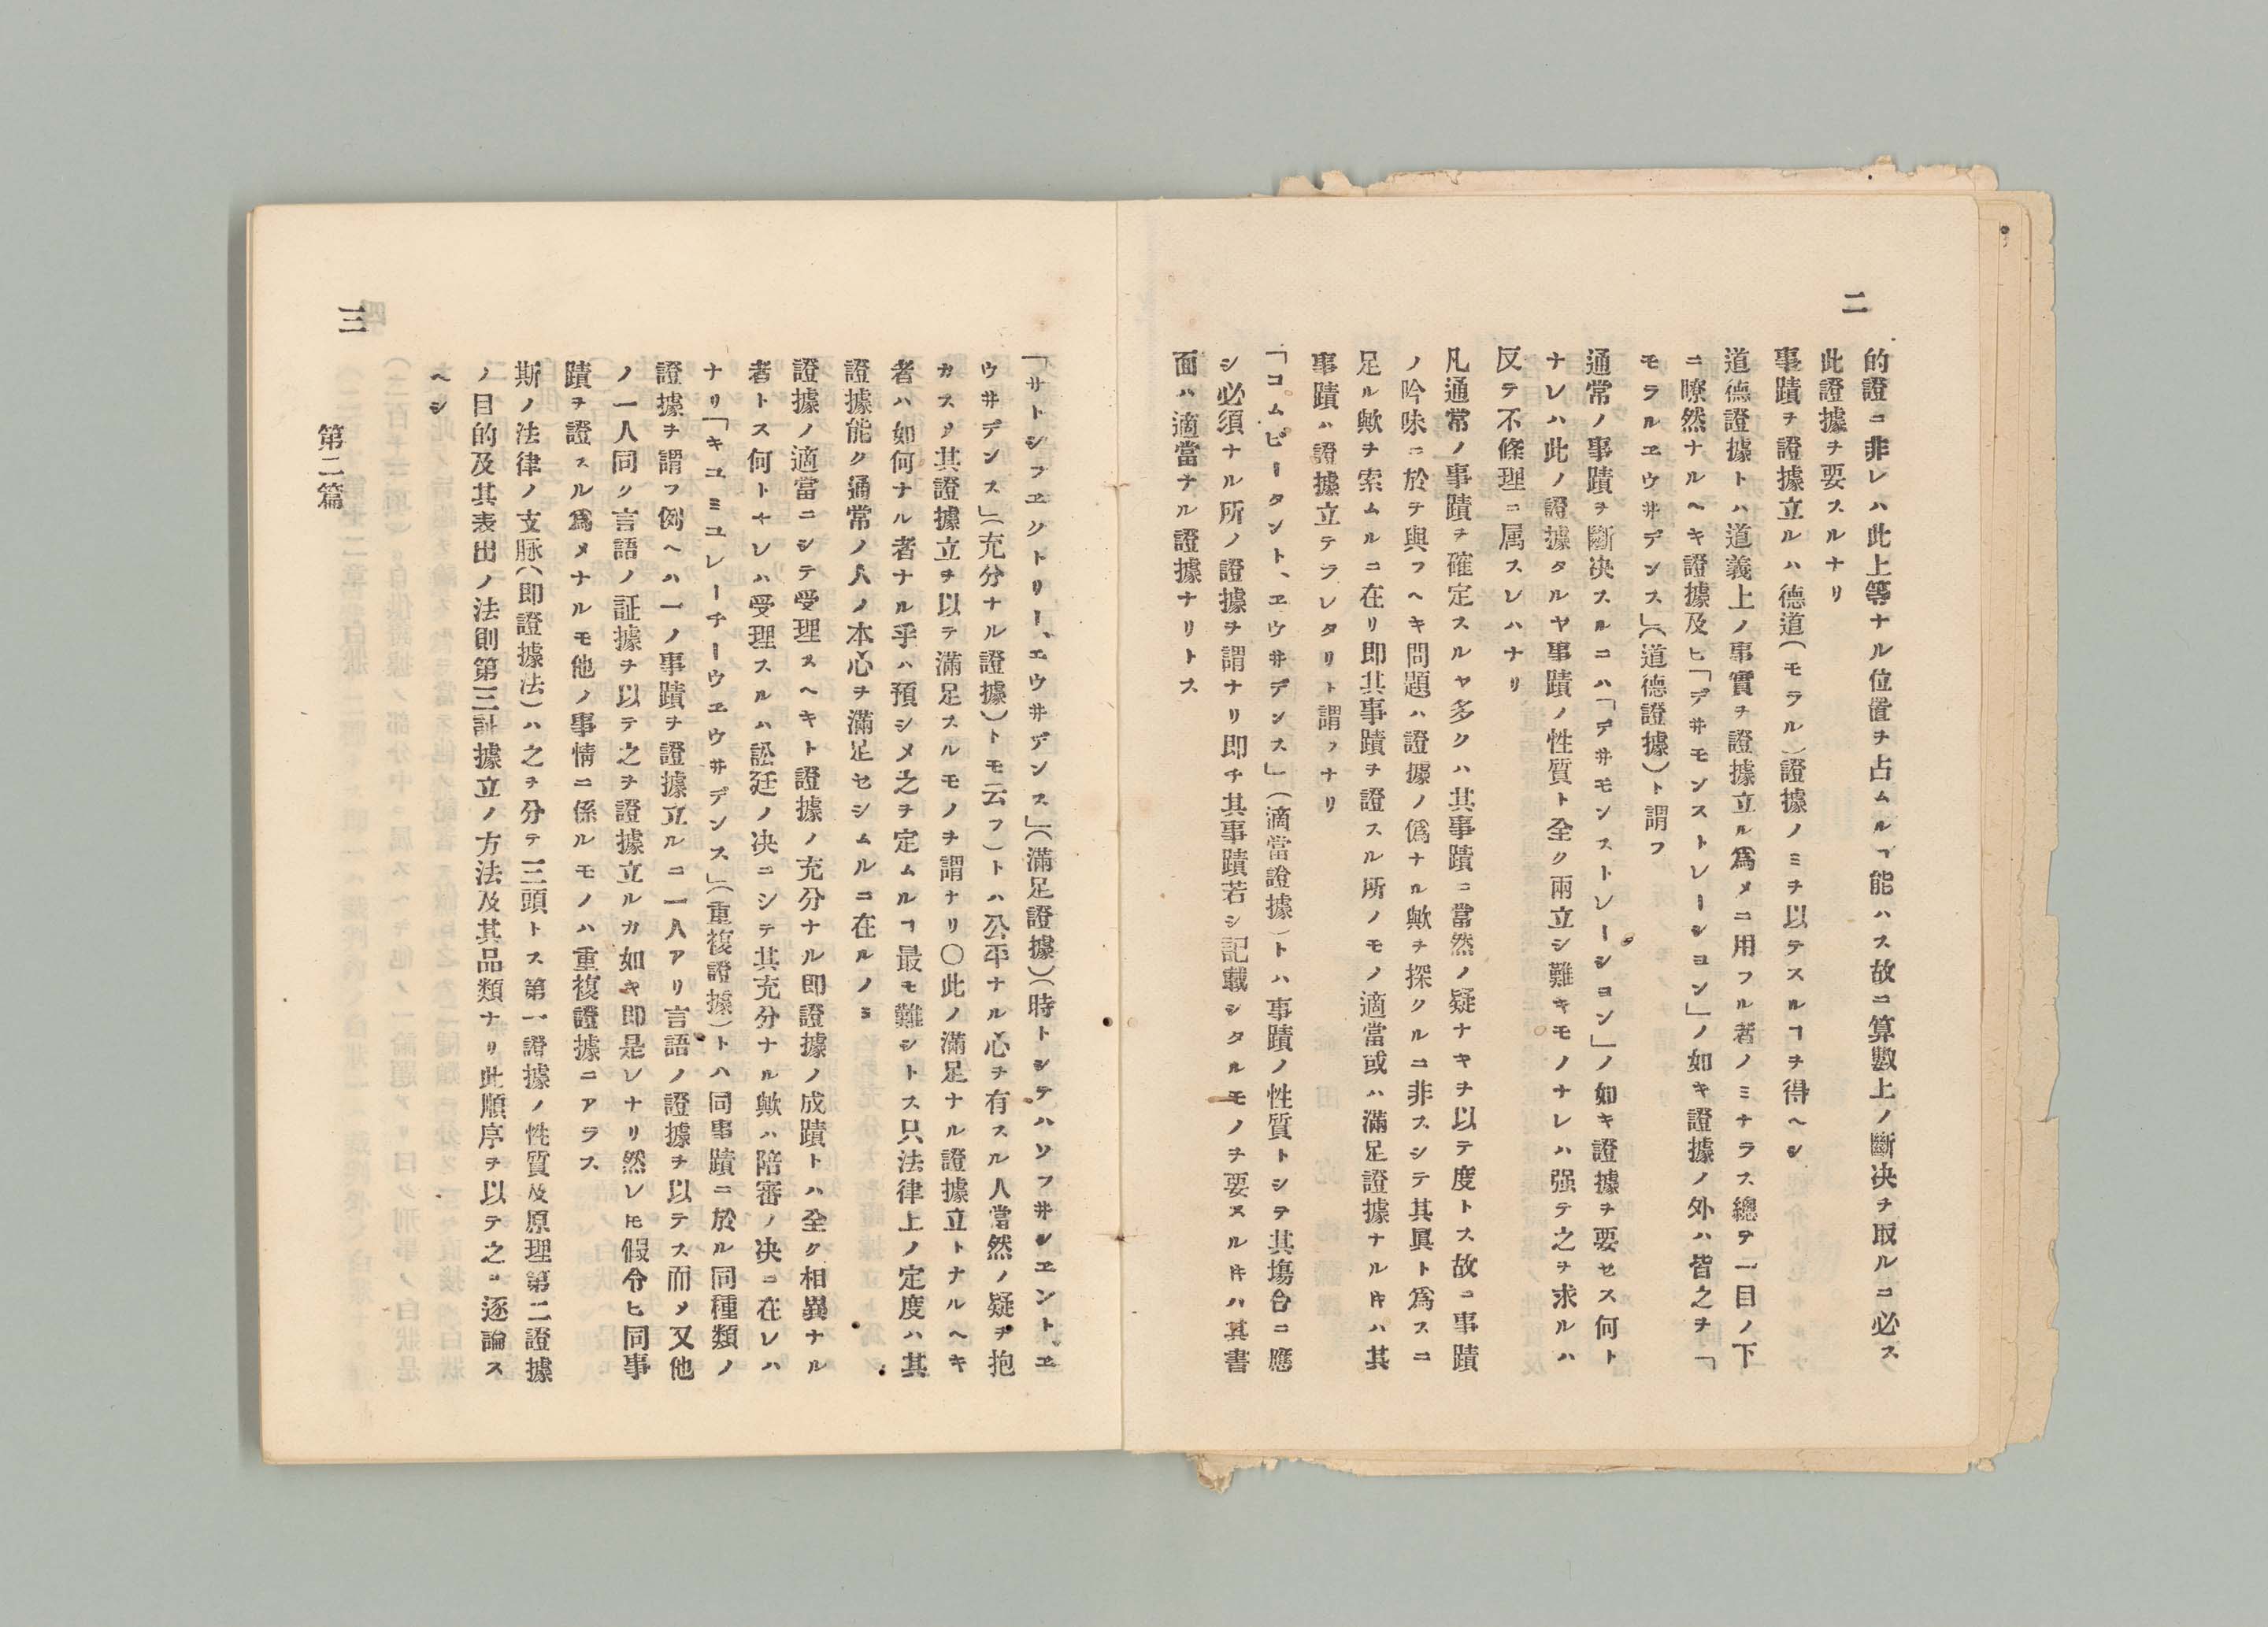 二
的證ニ非レハ此上等ナル位置ヲ占ムルヿ能ハス故ニ算數上ノ斷决ヲ取ルニ必ス
此證據ヲ要スルナリ
事蹟ヲ證據立ルハ德道(モラル)證據ノミヲ以テスルヿヲ得ヘシ
道德證據トハ道義上ノ事實ヲ證據立ル爲メニ用フル者ノミナラス總テ一目ノ下
ニ瞭然ナルヘキ證據及ヒ「デ井モンストレーシヨン」ノ如キ證據ノ外ハ皆之ヲ「
モラルエウ井デンス」(道德證據)ト謂フ
通常ノ事蹟ヲ斷决スルニハ「デ井モンストレーシヨン」ノ如キ證據ヲ要セス何ト
ナレハ此ノ證據タルヤ事蹟ノ性質ト全ク兩立シ難キモノナレハ强テ之ヲ求ルハ
反テ不條理ニ属スレハナリ
凡通常ノ事蹟ヲ確定スルヤ多クハ其事蹟ニ當然ノ疑ナキヲ以テ度トス故ニ事蹟
ノ吟味ニ於テ與フヘキ問題ハ證據ノ僞ナル歟ヲ探クルニ非スシテ其眞ト爲スニ
足ル歟ヲ索ムルニ在リ即其事蹟ヲ證スル所ノモノ適當或ハ滿足證據ナルトキハ其
事蹟ハ證據立テラレタリト謂フナリ
「コムピータント、エウ井デンス」(滴當證據)トハ事蹟ノ性質トシテ其塲合ニ應
シ必須ナル所ノ證據ヲ謂ナリ即チ其事蹟若シ記載シタルモノヲ要スルトキハ其書
面ハ適當ナル證據ナリトス
三
「サトシフエクトリー、エウ井デンス」(滿足證據)(時トシテハソフ井シエント、エ
ウ井デンス」(充分ナル證據)トモ云フ)トハ公平ナル心ヲ有スル人當然ノ疑ヲ抱
カスメ其證據立ヲ以テ滿足スルモノヲ謂ナリ〇此ノ滿足ナル證據立トナルヘキ
者ハ如何ナル者ナル乎ハ預シメ之ヲ定ムルヿ最モ難シトス只法律上ノ定度ハ其
證據能ク通常ノ人ノ本心ヲ滿足セシムルニ在ルノミ
證據ノ適當ニシテ受理スヘキト證據ノ充分ナル即證據ノ成蹟トハ全ク相異ナル
者トス何トナレハ受理スルハ訟廷ノ决ニシテ其充分ナル歟ハ陪審ノ决ニ在レハ
ナリ「キユミユレーチーウエウ井デンス」(重複證據)トハ同事蹟ニ於ル同種類ノ
證據ヲ謂フ例ヘハ一ノ事蹟ヲ證據立ルニ一人アリ言語ノ證據ヲ以テス而メ又他
ノ一人同ク言語ノ証據ヲ以テ之ヲ證據立ルカ如キ即是レナリ然レ𪜈假令ヒ同事
蹟ヲ證スル爲メナルモ他ノ事情ニ係ルモノハ重複證據ニアラス
斯ノ法律ノ支脈(即證據法)ハ之ヲ分テ三頭トス第一證據ノ性質及原理第二證據
ノ目的及其表出ノ法則第三証據立ノ方法及其品類ナリ此順序ヲ以テ之ニ逐論ス
ヘシ
第二篇